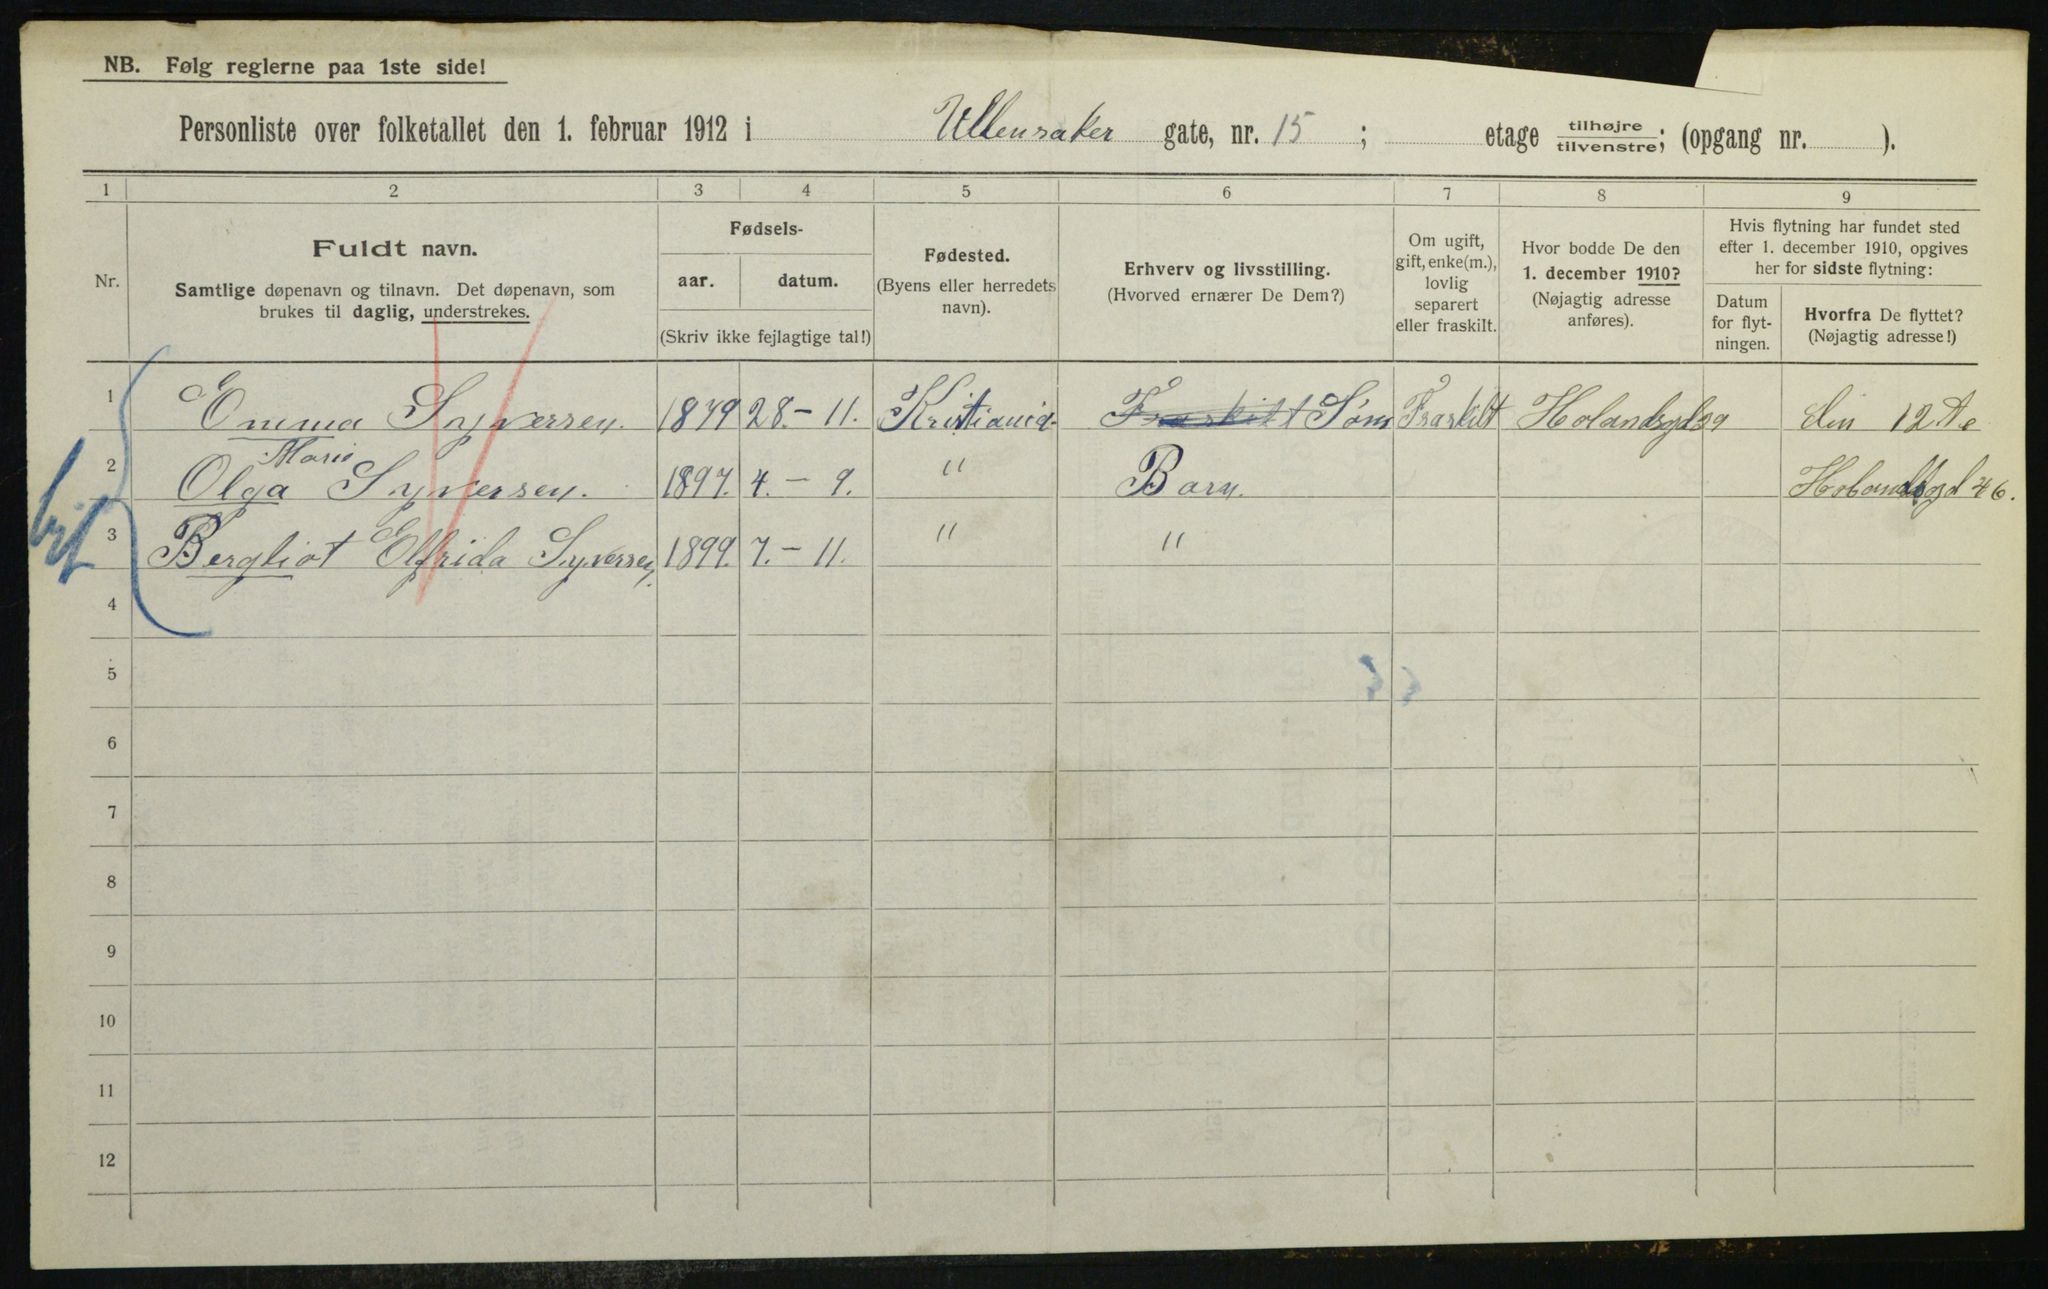 NB. Følg reglerne paa 1ste side!
Personliste over folketallet den 1. februar 1912 i Ullensaker gate, nr. 15; etage tilhøjre tilvenstre; (opgang nr. ).
1 2 3 4 5 6 7 8 9
Nr.
Fuldt navn.
Samtlige døpenavn og tilnavn. Det døpenavn, som
brukes til daglig, understrekes.
Fødsels-
aar. datum.
(Skriv ikke fejlagtige tal!)
Fødested.
(Byens eller herredets
navn).
Erhverv og livsstilling.
(Hvorved ernærer De Dem?)
Om ugift,
gift, enke(m.),
lovlig
separert
eller fraskilt.
Hvor bodde De den
1. december 1910?
(Nøjagtig adresse
anføres).
Hvis flytning har fundet sted
efter 1. december 1910, opgives
her for sidste flytning:
Datum
for flyt-
ningen.
Hvorfra De flyttet?
(Nøjagtig adresse!)
1 Emma Syversen. 1879 28.-11. Kristiania. Fraskilt Søm Fraskilt 12
Marie
2 Olga Syversen. 1897. 4.-9. " Barn. 46.
3 Bergliot Elfrida Syversen. 1899. 7.-11. " "
4
5
6
7
8
9
10
11
12